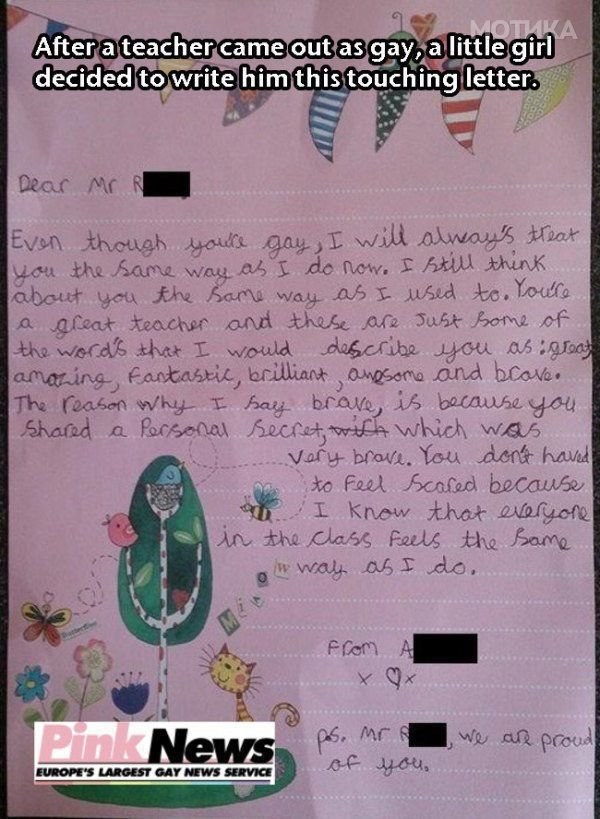 МОТИКА
After a teacher came out as gay, a little girl
decided to write him this touching letter.
Dear Mr R
Even though you're gay, I will alway's treat
you the same way as I do now. I still think
about you the same way as I used to. You're
a great teacher and these are Just some of
the word's that I would describe you as: great
amazing, fantastic, brilliant, awesome and brave.
The reason why I say brave, is because you
shared a Personal secret, with which was
very brave. You don't haved
to feel scared because
I know that everyone
in the class feels the same
way as I do.
Miaow
Butterflies
From A
x ♡ x
ps. Mr R, we are proud
of you.
PinkNews
EUROPE'S LARGEST GAY NEWS SERVICE